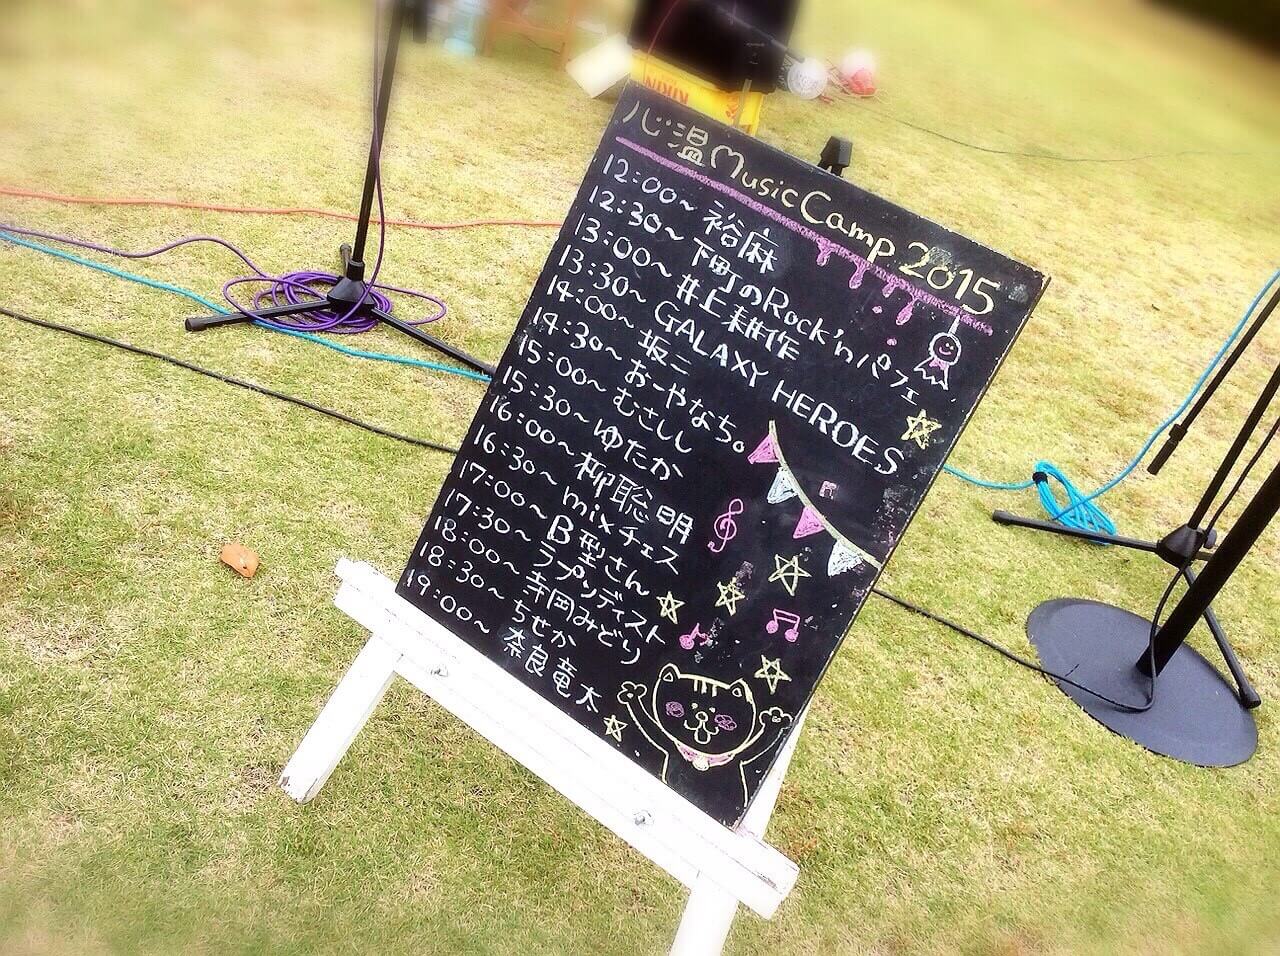 KIRIN
心温 Music Camp 2015
12:00~ 裕麻
12:30~ 下町のRock'nパフェ
13:00~ 井上耕作
13:30~ GALAXY HEROES
14:00~ 坂二
14:30~ おーやなち。
15:00~ むさしし
15:30~ ゆたか
16:00~ 柳聡明
16:30~ mixチェス
17:00~ B型さん
17:30~ ラプンディスト
18:00~ 寺岡みどり
18:30~ ちせか
19:00~ 奈良竜太